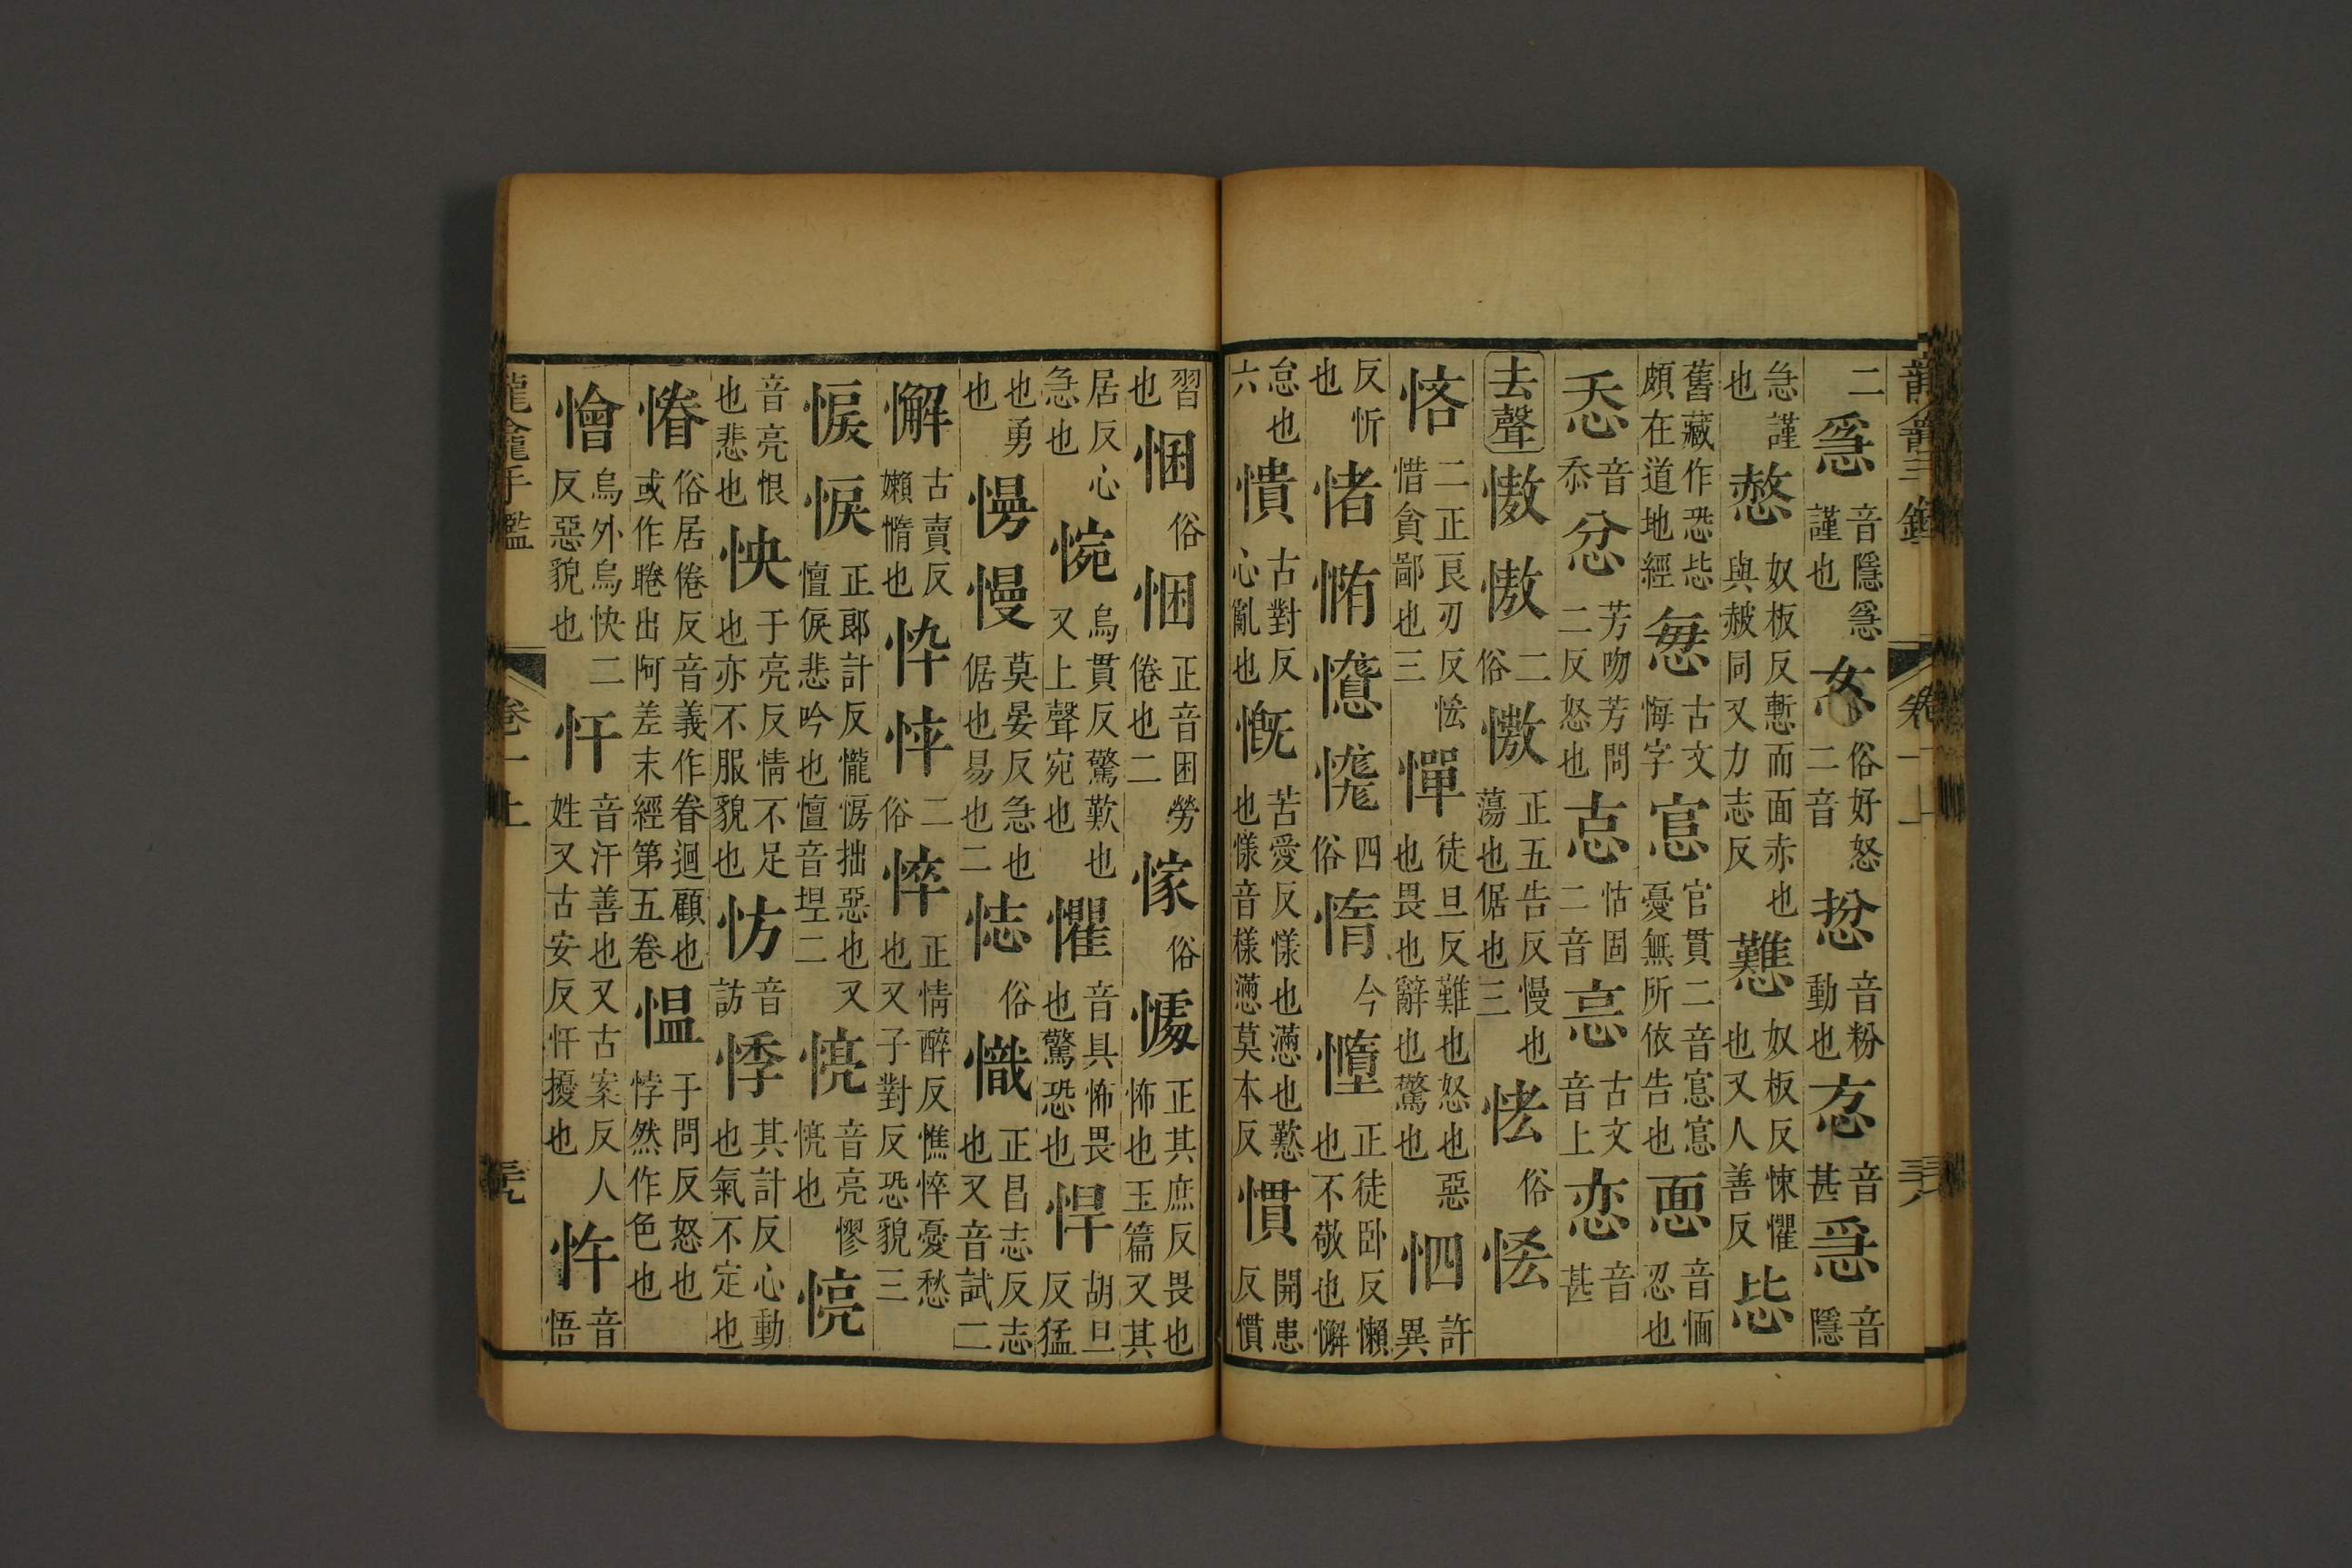 龍龕手鑑 卷一上 三八
二㥯音隱㥯謹也 㤅俗好怒二音 㥹音粉動也 㤪音甚 㥯音隱
急謹也 憗奴板反慙而面赤也與赧同又力志反 戁奴板反悚懼也又人善反 㤳
舊藏作恐㤳頗在道地經 㥌古文悔字 悹官貫二音悹悹憂無所依告也 愐音愐忍也
忝音忝 忿芳吻芳問二反怒也 怘怙固二音 㤟古文音上 恋音甚
去聲 慠慠二俗 慠正五告反慢也蕩也倨也三 恡俗 恡
悋二正良刃反恡惜貪鄙也三 憚徒旦反難也怒也惡也畏也辭也驚也 怬許異
反忻也 㥩㤢憶㦎四俗 惰今 憜正徒卧反懶也不敬也懈
怠也六 憒古對反心亂也 慨苦愛反慨也懣也懃也㨾音樣懣莫本反 慣開患反慣
習也 悃俗 悃正音困勞倦也二 㥟俗 懅正其庶反畏也怖也玉篇又其
居反心急也 惋烏貫反驚歎也又上聲宛也 懼音具怖畏也驚恐也 悍胡旦反猛
也勇也 㦀慢莫晏反急也倨也易也二 㤴俗 幟正昌志反志也又音試二
懈古賣反嬾惰也 忰悴二俗 悴正情醉反憔悴憂愁也又子對反恐貌三
悷悷正郎計反儱悷拙惡也又懍悷悲吟也二 㥫音亮㦬㥫也 㥫
音亮恨也悲也 怏于亮反情不足也亦不服貌也 㤃音訪 悸其計反心動也氣不定也
惓俗居倦反音義作眷迴顧也或作睠出阿差末經第五卷 愠于問反怒也悖然作色也
懀烏外烏快二反惡貌也 忓音汗善也又古案反人姓又古安反忓擾也 忤音悟
龍龕手鑑 卷一上 三九